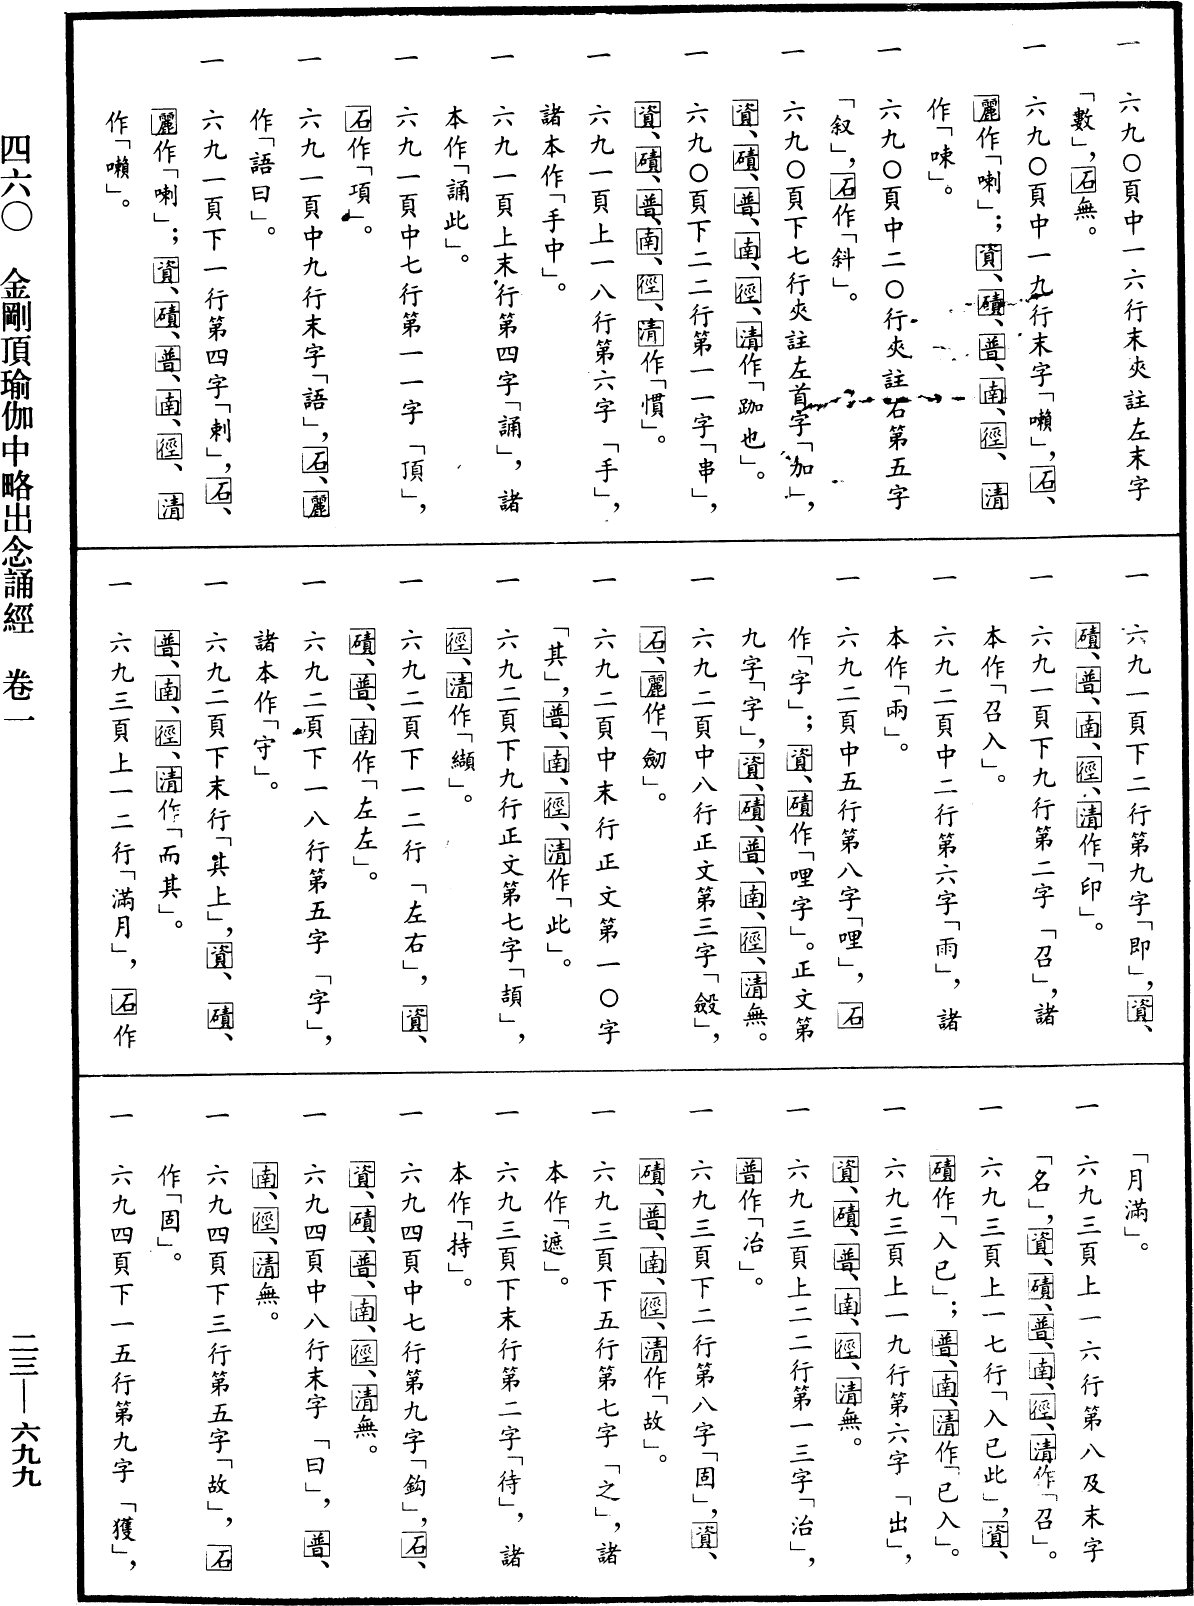 一　六九〇頁中一六行末夾註左末字
「數」，石無。
一　六九〇頁中一九行末字「嚩」，石、
麗作「喇」；資、磧、普、南、徑、清
作「㗚」。
一　六九〇頁中二〇行夾註右第五字
「叙」，石作「斜」。
一　六九〇頁下七行夾註左首字「加」，
資、磧、普、南、徑、清作「跏也」。
一　六九〇頁下二二行第一一字「串」，
資、磧、普、南、徑、清作「慣」。
一　六九一頁上一八行第六字「手」，
諸本作「手中」。
一　六九一頁上末行第四字「誦」，諸
本作「誦此」。
一　六九一頁中七行第一一字「頂」，
石作「項」。
一　六九一頁中九行末字「語」，石、麗
作「語曰」。
一　六九一頁下一行第四字「剌」，石、
麗作「喇」；資、磧、普、南、徑、清
作「嚩」。
一　六九一頁下二行第九字「即」，資、
磧、普、南、徑、清作「印」。
一　六九一頁下九行第二字「召」，諸
本作「召入」。
一　六九二頁中二行第六字「雨」，諸
本作「兩」。
一　六九二頁中五行第八字「哩」，石
作「字」；資、磧作「哩字」。正文第
九字「字」，資、磧、普、南、徑、清無。
一　六九二頁中八行正文第三字「毉」，
石、麗作「劒」。
一　六九二頁中末行正文第一〇字
「其」，普、南、徑、清作「此」。
一　六九二頁下九行正文第七字「頡」，
徑、清作「纈」。
一　六九二頁下一二行「左右」，資、
磧、普、南作「左左」。
一　六九二頁下一八行第五字「字」，
諸本作「守」。
一　六九二頁下末行「其上」，資、磧、
普、南、徑、清作「而其」。
一　六九三頁上一二行「滿月」，石作
「月滿」。
一　六九三頁上一六行第八及末字
「名」，資、磧、普、南、徑、清作「召」。
一　六九三頁上一七行「入已此」，資、
磧作「入已」；普、南、清作「已入」。
一　六九三頁上一九行第六字「出」，
資、磧、普、南、徑、清無。
一　六九三頁上二二行第一三字「治」，
普作「冶」。
一　六九三頁下二行第八字「固」，資、
磧、普、南、徑、清作「故」。
一　六九三頁下五行第七字「之」，諸
本作「遮」。
一　六九三頁下末行第二字「待」，諸
本作「持」。
一　六九四頁中七行第九字「鈎」，石、
資、磧、普、南、徑、清無。
一　六九四頁中八行末字「曰」，普、
南、徑、清無。
一　六九四頁下三行第五字「故」，石
作「固」。
一　六九四頁下一五行第九字「獲」，
四六〇　金剛頂瑜伽中略出念誦經　卷一
二三—六九九